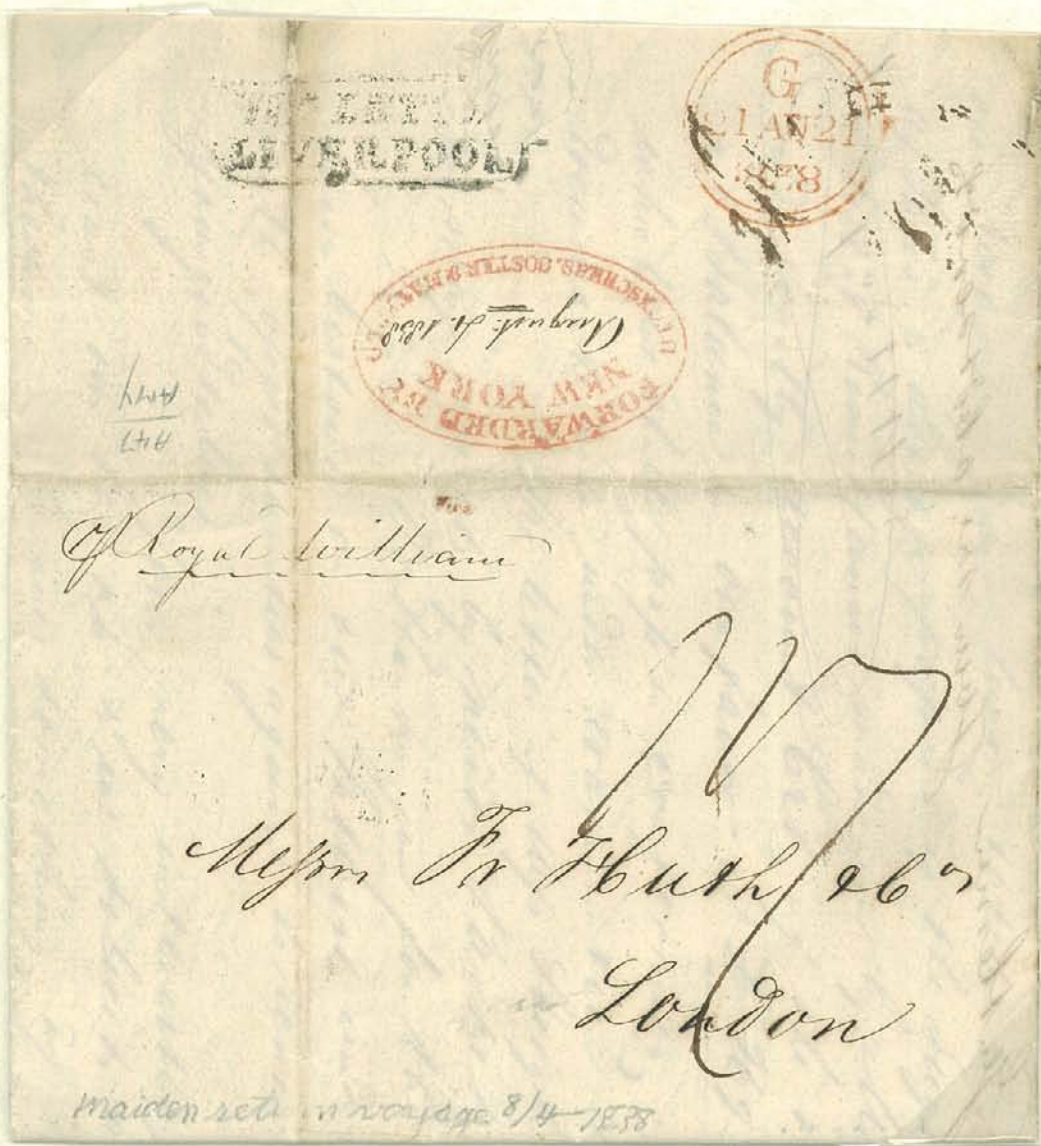 LIVERPOOL
G
21 AU 21
1838
FORWARDED BY
NEW YORK
August 4. 1838
A44
A47
Royal William
Messrs Fr Huth & Co
London
Maiden return voyage 8/4-1838